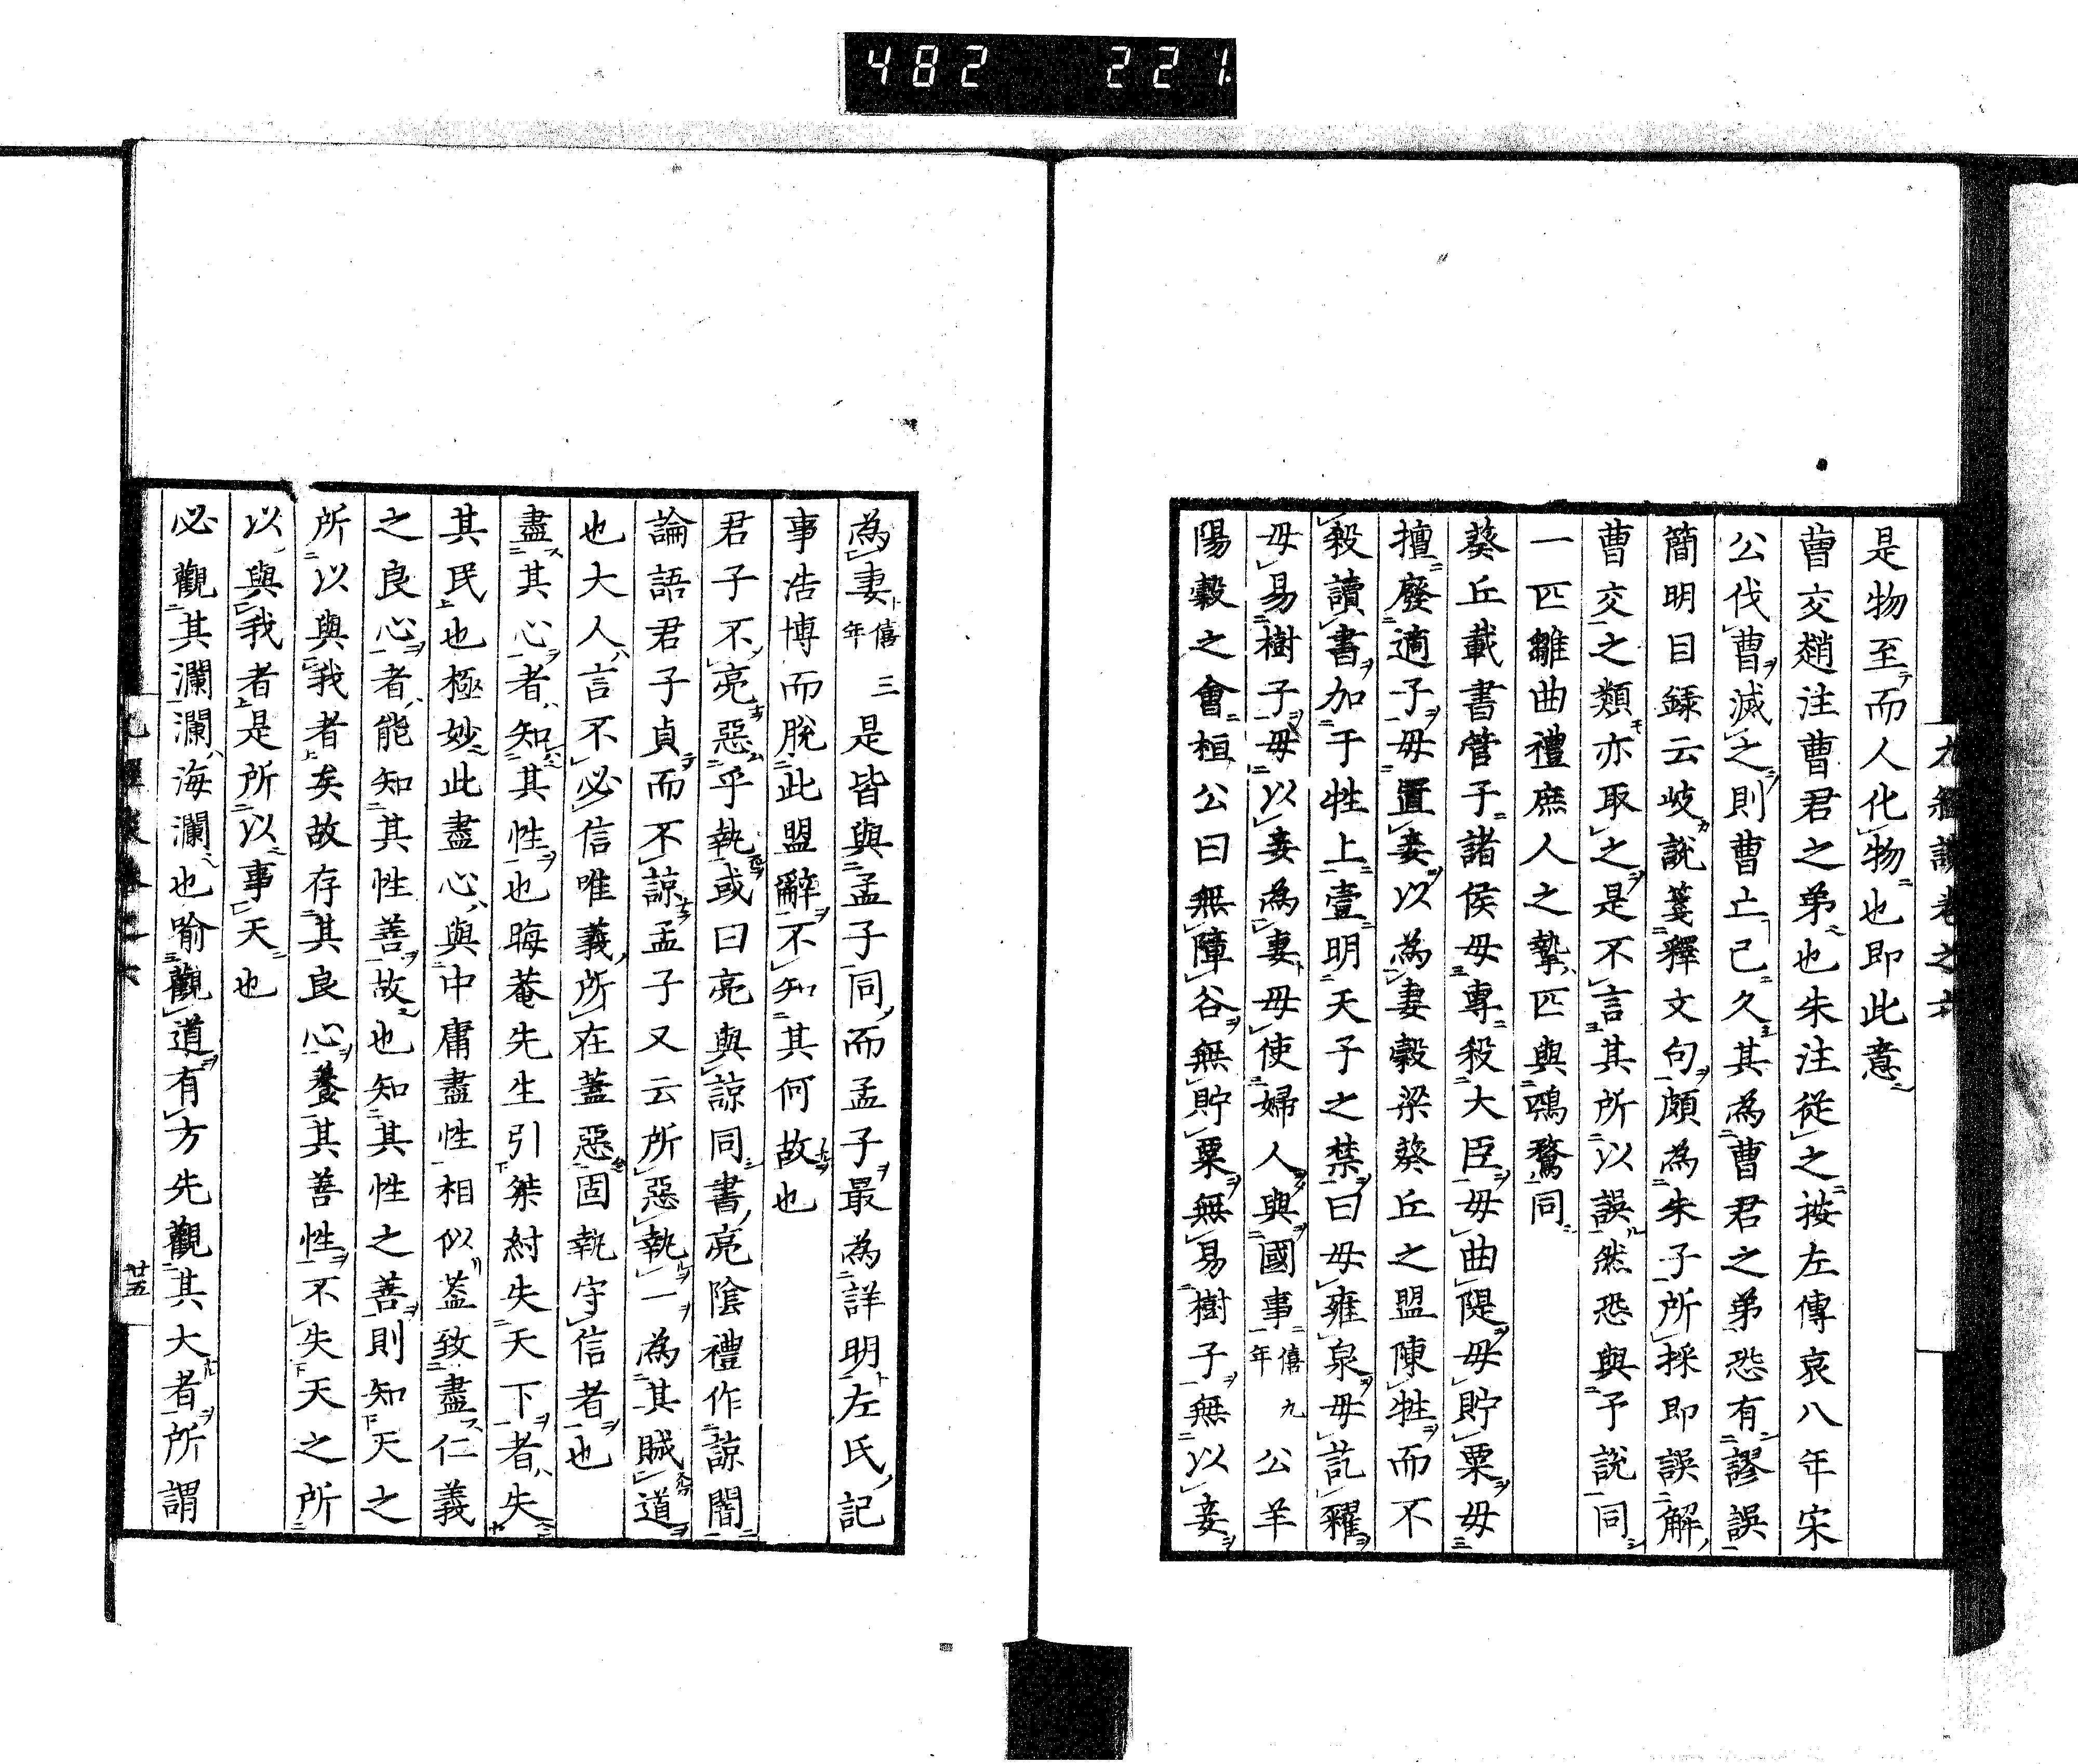 482 221
九經談卷之六
是物至而人化物也即此意
曹交趙注曹君之弟也朱注從之按左傳哀八年宋
公伐曹滅之則曹亡已久其為曹君之弟恐有謬誤
簡明目録云岐說箋釋文句頗為朱子所採即誤解
曹交之類亦取之是不言其所以誤然恐與予說同
一匹雛曲禮庶人之摯匹與鴄鶩同
葵丘載書管子諸侯毋專殺大臣毋曲隄毋貯粟毋
擅廢適子毋置妾以為妻穀梁葵丘之盟陳牲而不
殺讀書加于牲上壹明天子之禁曰毋雍泉毋訖糴
毋易樹子毋以妾為妻毋使婦人與國事僖九年公羊
陽穀之會桓公曰無障谷無貯粟無易樹子無以妾
為妻僖三年是皆與孟子同而孟子最為詳明左氏記
事浩博而脫此盟辭不知其何故也
君子不亮惡乎執或曰亮與諒同書亮陰禮作諒闇
論語君子貞而不諒孟子又云所惡執一為其賊道
也大人言不必信唯義所在蓋惡固執守信者也
盡其心者知其性也晦菴先生引桀紂失天下者失
其民也極妙此盡心與中庸盡性相似蓋致盡仁義
之良心者能知其性善故也知其性之善則知天之
所以與我者矣故存其良心養其善性不失天之所
以與我者是所以事天也
必觀其瀾瀾海瀾也喻觀道有方先觀其大者所謂
廿五